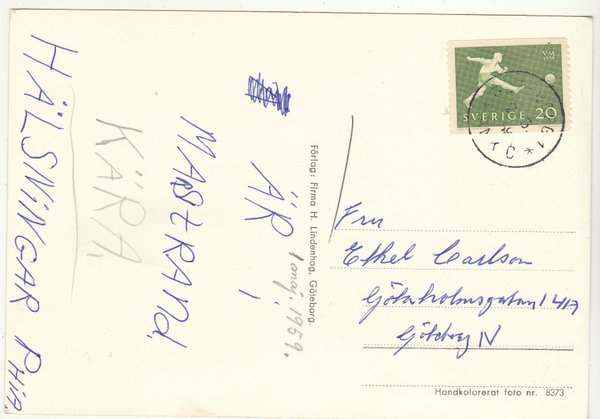 KÄRA,
ÄR i
MASTRAND,
HÄLSNINGAR PHIA
1 maj. 1959.
Förlag: Firma H. Lindenhag, Göteborg.
VM
1958
SVERIGE 20
Fru
Ethel Carlson
Götaholmsgatan 14A
Göteborg N
Handkolorerat foto nr. 8373